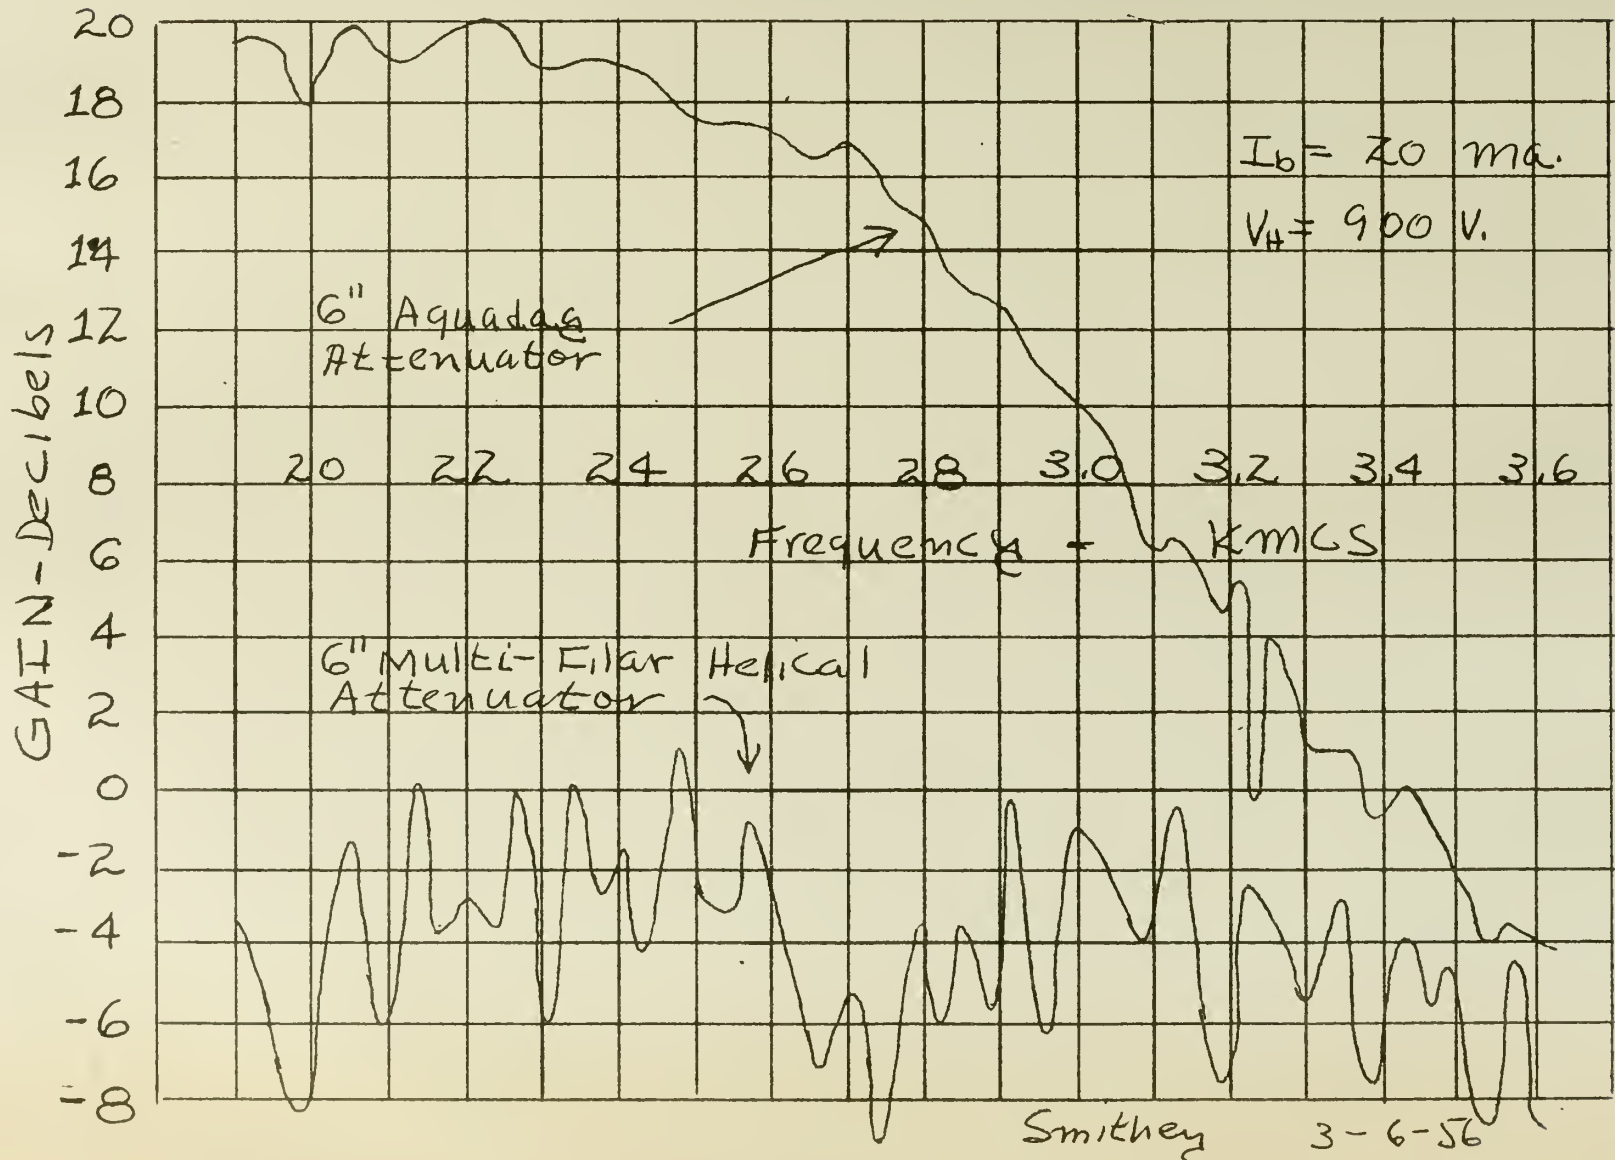 20
18
16
14
12
10
8
6
4
2
0
-2
-4
-6
-8
GAIN-Decibels
Ib = 20 ma.
VH = 900 V.
6" Aquadag
Attenuator
2.0 2.2 2.4 2.6 2.8 3.0 3.2 3.4 3.6
Frequency - KMCS
6" Multi-Filar Helical
Attenuator
Smithey 3-6-56